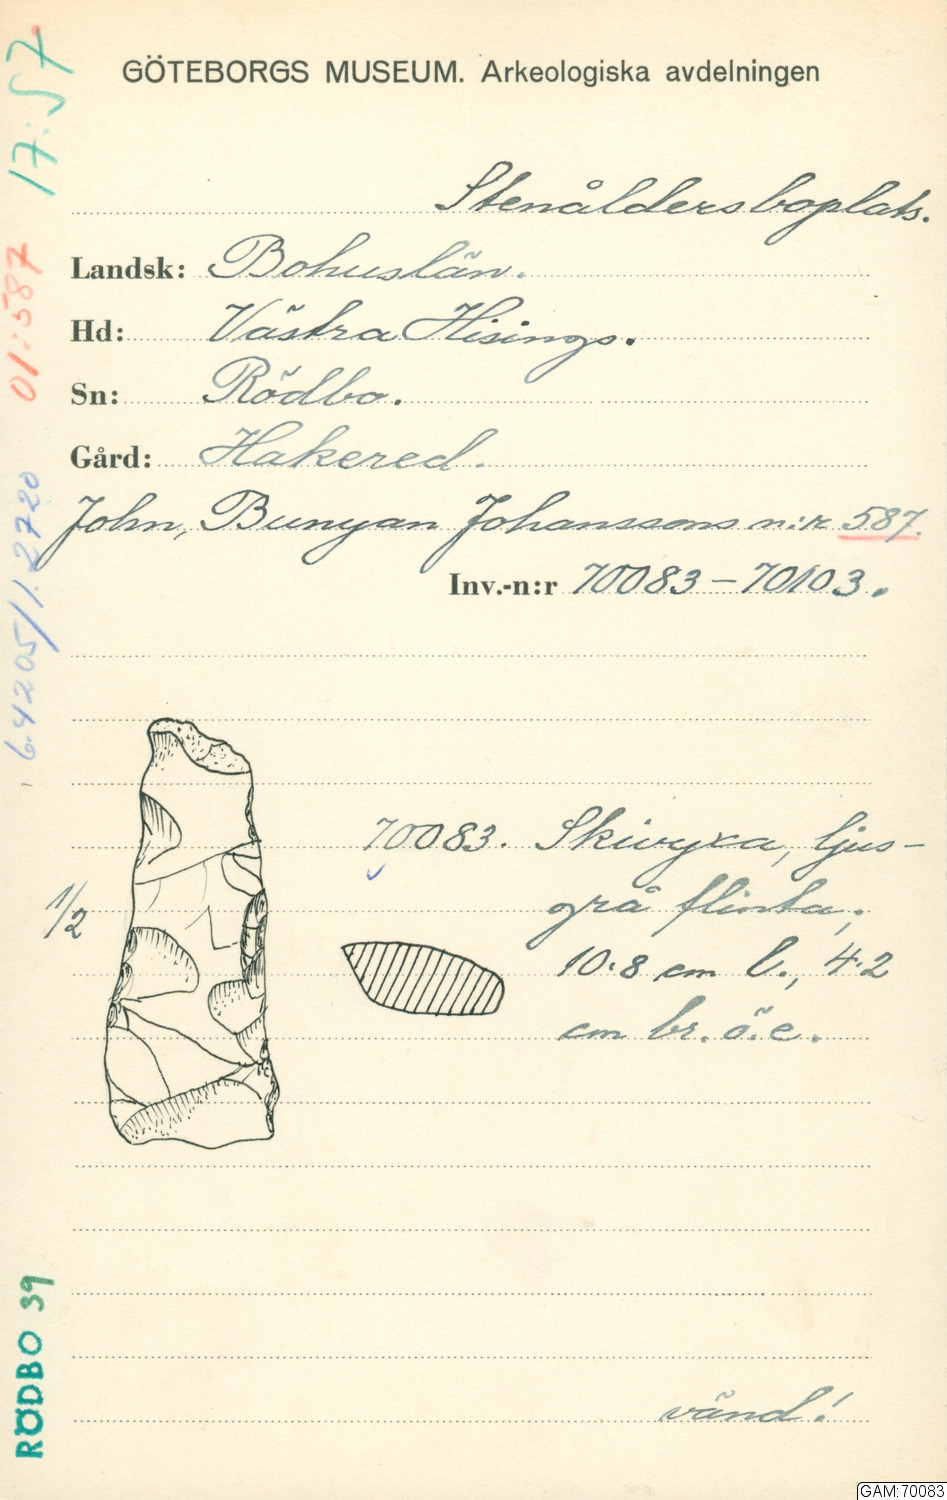 GÖTEBORGS MUSEUM. Arkeologiska avdelningen
Stenåldersboplats.
Landsk: Bohuslän.
Hd: Västra Hisings.
Sn: Rödbo.
Gård: Hakered.
John, Bunyan Johanssons n:r 587.
Inv.-n:r 70083-70103.
70083. Skivyxa, ljus-
grå flinta,
1/2
10.8 cm l., 4.2
cm br. ö.e.
vänd!
17:57
01:587
64205/1.2720
RÖDBO 39
GAM:70083